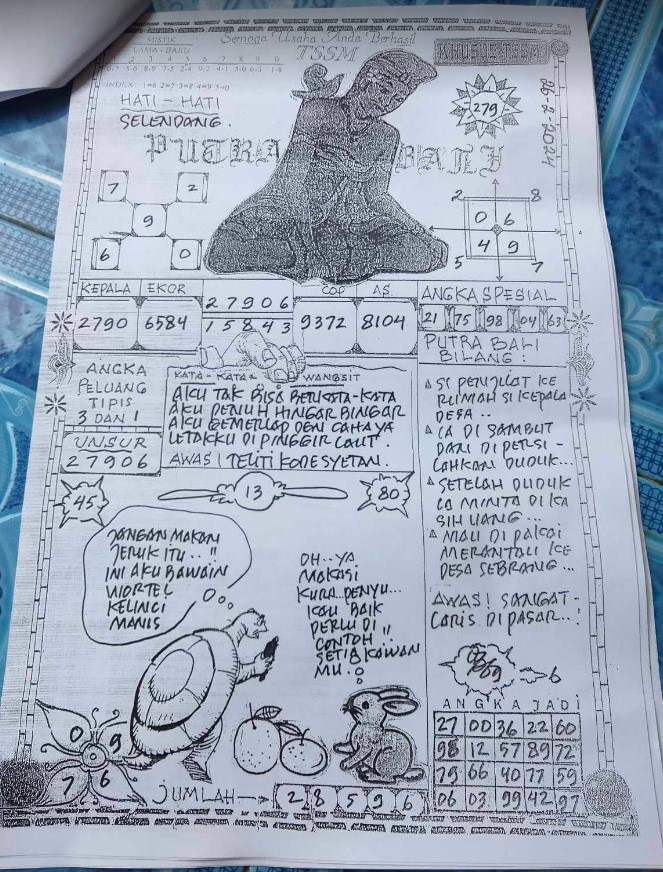 MISTIK
LAMA - BARU
Semoga Usaha Anda Berhasil
TSSM
KHUSUS TSSM
INDEX : 1=6 2=7 3=8 4=9 5=0
HATI - HATI
SELENDANG.
279
28-2-2024
PUTRA BALI
7 2
9
6 0
2 8
0 6
4 9
5 7
KEPALA EKOR
2790 6584
27906
15843
COP AS
9372 8104
ANGKA SPESIAL
21 75 98 04 63
ANGKA
PELUANG
TIPIS
3 DAN 1
UNSUR
27906
KATA - KATA WANGSIT
AKU TAK BISA BERKATA-KATA
AKU PENUH HINGAR BINGAR
AKU GEMERLAP DEN CAHAYA
LETAKKU DI PINGGIR LAUT.
AWAS! TELITI KODE SYETAN.
PUTRA BALI
BILANG :
SI PENJILAT KE
RUMAH SI KEPALA
DESA..
IA DI SAMBUT
DAN DI PERSI-
LAHKAN DUDUK...
SETELAH DUDUK
IA MINTA DI KA
SIH UANG...
MAU DI PAKAI
MERANTAU KE
DESA SEBRANG...
AWAS! SANGAT-
LARIS DI PASAR..!
45
13
80
JANGAN MAKAN
JERUK ITU.. !!
INI AKU BAWAIN
WORTEL
KELINCI
MANIS
OH..YA
MAKASI
KURA PENYU...
KAU BAIK
PERLU DI
CONTOH !!
SETIA KAWAN
MU.
6
0 9
7 6
JUMLAH → 2 8 5 9 6
ANGKA JADI
27 00 36 22 60
98 12 57 89 72
79 66 40 77 59
06 03 99 42 97